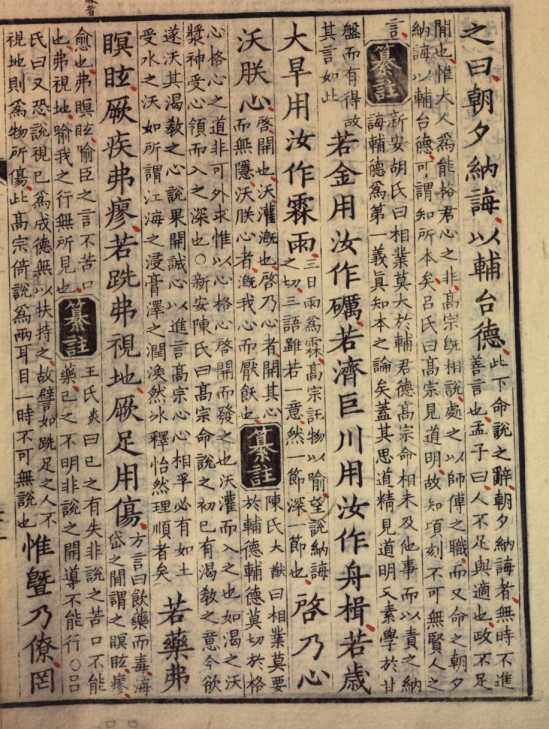 之曰朝夕納誨以輔台德
此下命說之辭朝夕納誨者無時不進
善言也孟子曰人不足與適也政不足
間也惟大人爲能格君心之非高宗旣相說處之以師傅之職而又命之朝夕
納誨以輔台德可謂知所本矣呂氏曰高宗見道明故知頃刻不可無賢人之
言
纂註
新安胡氏曰相業莫大於輔君德高宗命相未及他事而以責之納
誨輔德爲第一義眞知本之論矣蓋其思道精見道明又素學於甘
盤而有得故
其言如此
若金用汝作礪若濟巨川用汝作舟楫若歳
大旱用汝作霖雨
三日雨爲霖高宗託物以喻望說納誨
之切三語雖若一意然一節深一節也
啓乃心
沃朕心
啓開也沃灌漑也啓乃心者開其心
而無隱沃朕心者漑我心而厭飫也
纂註
陳氏大猷曰相業莫要
於輔德輔德莫切於格
心格心之道非可外求惟以心格心啓開而發之也沃灌而入之也如渴之沃
漿神受心領而入之深也○新安陳氏曰高宗命說之初已有渴教之意今欲
遂沃其渴教之心說果開誠心以進言高宗心心相孚必有如土
受水之沃如所謂江海之浸膏澤之潤渙然冰釋怡然理順者矣
若藥弗
瞑眩厥疾弗瘳若跣弗視地厥足用傷
方言曰飮藥而毒海
岱之間謂之瞑眩瘳
愈也弗瞑眩喻臣之言不苦口
也弗視地喻我之行無所見也
纂註
王氏炎曰己之有失非說之苦口不能
藥己之不明非說之開導不能行○呂
氏曰又恐說視已爲成德無以扶持之故譬如跣足之人不
視地則爲物所傷此高宗倚說爲兩耳目一時不可無說也
惟曁乃僚罔